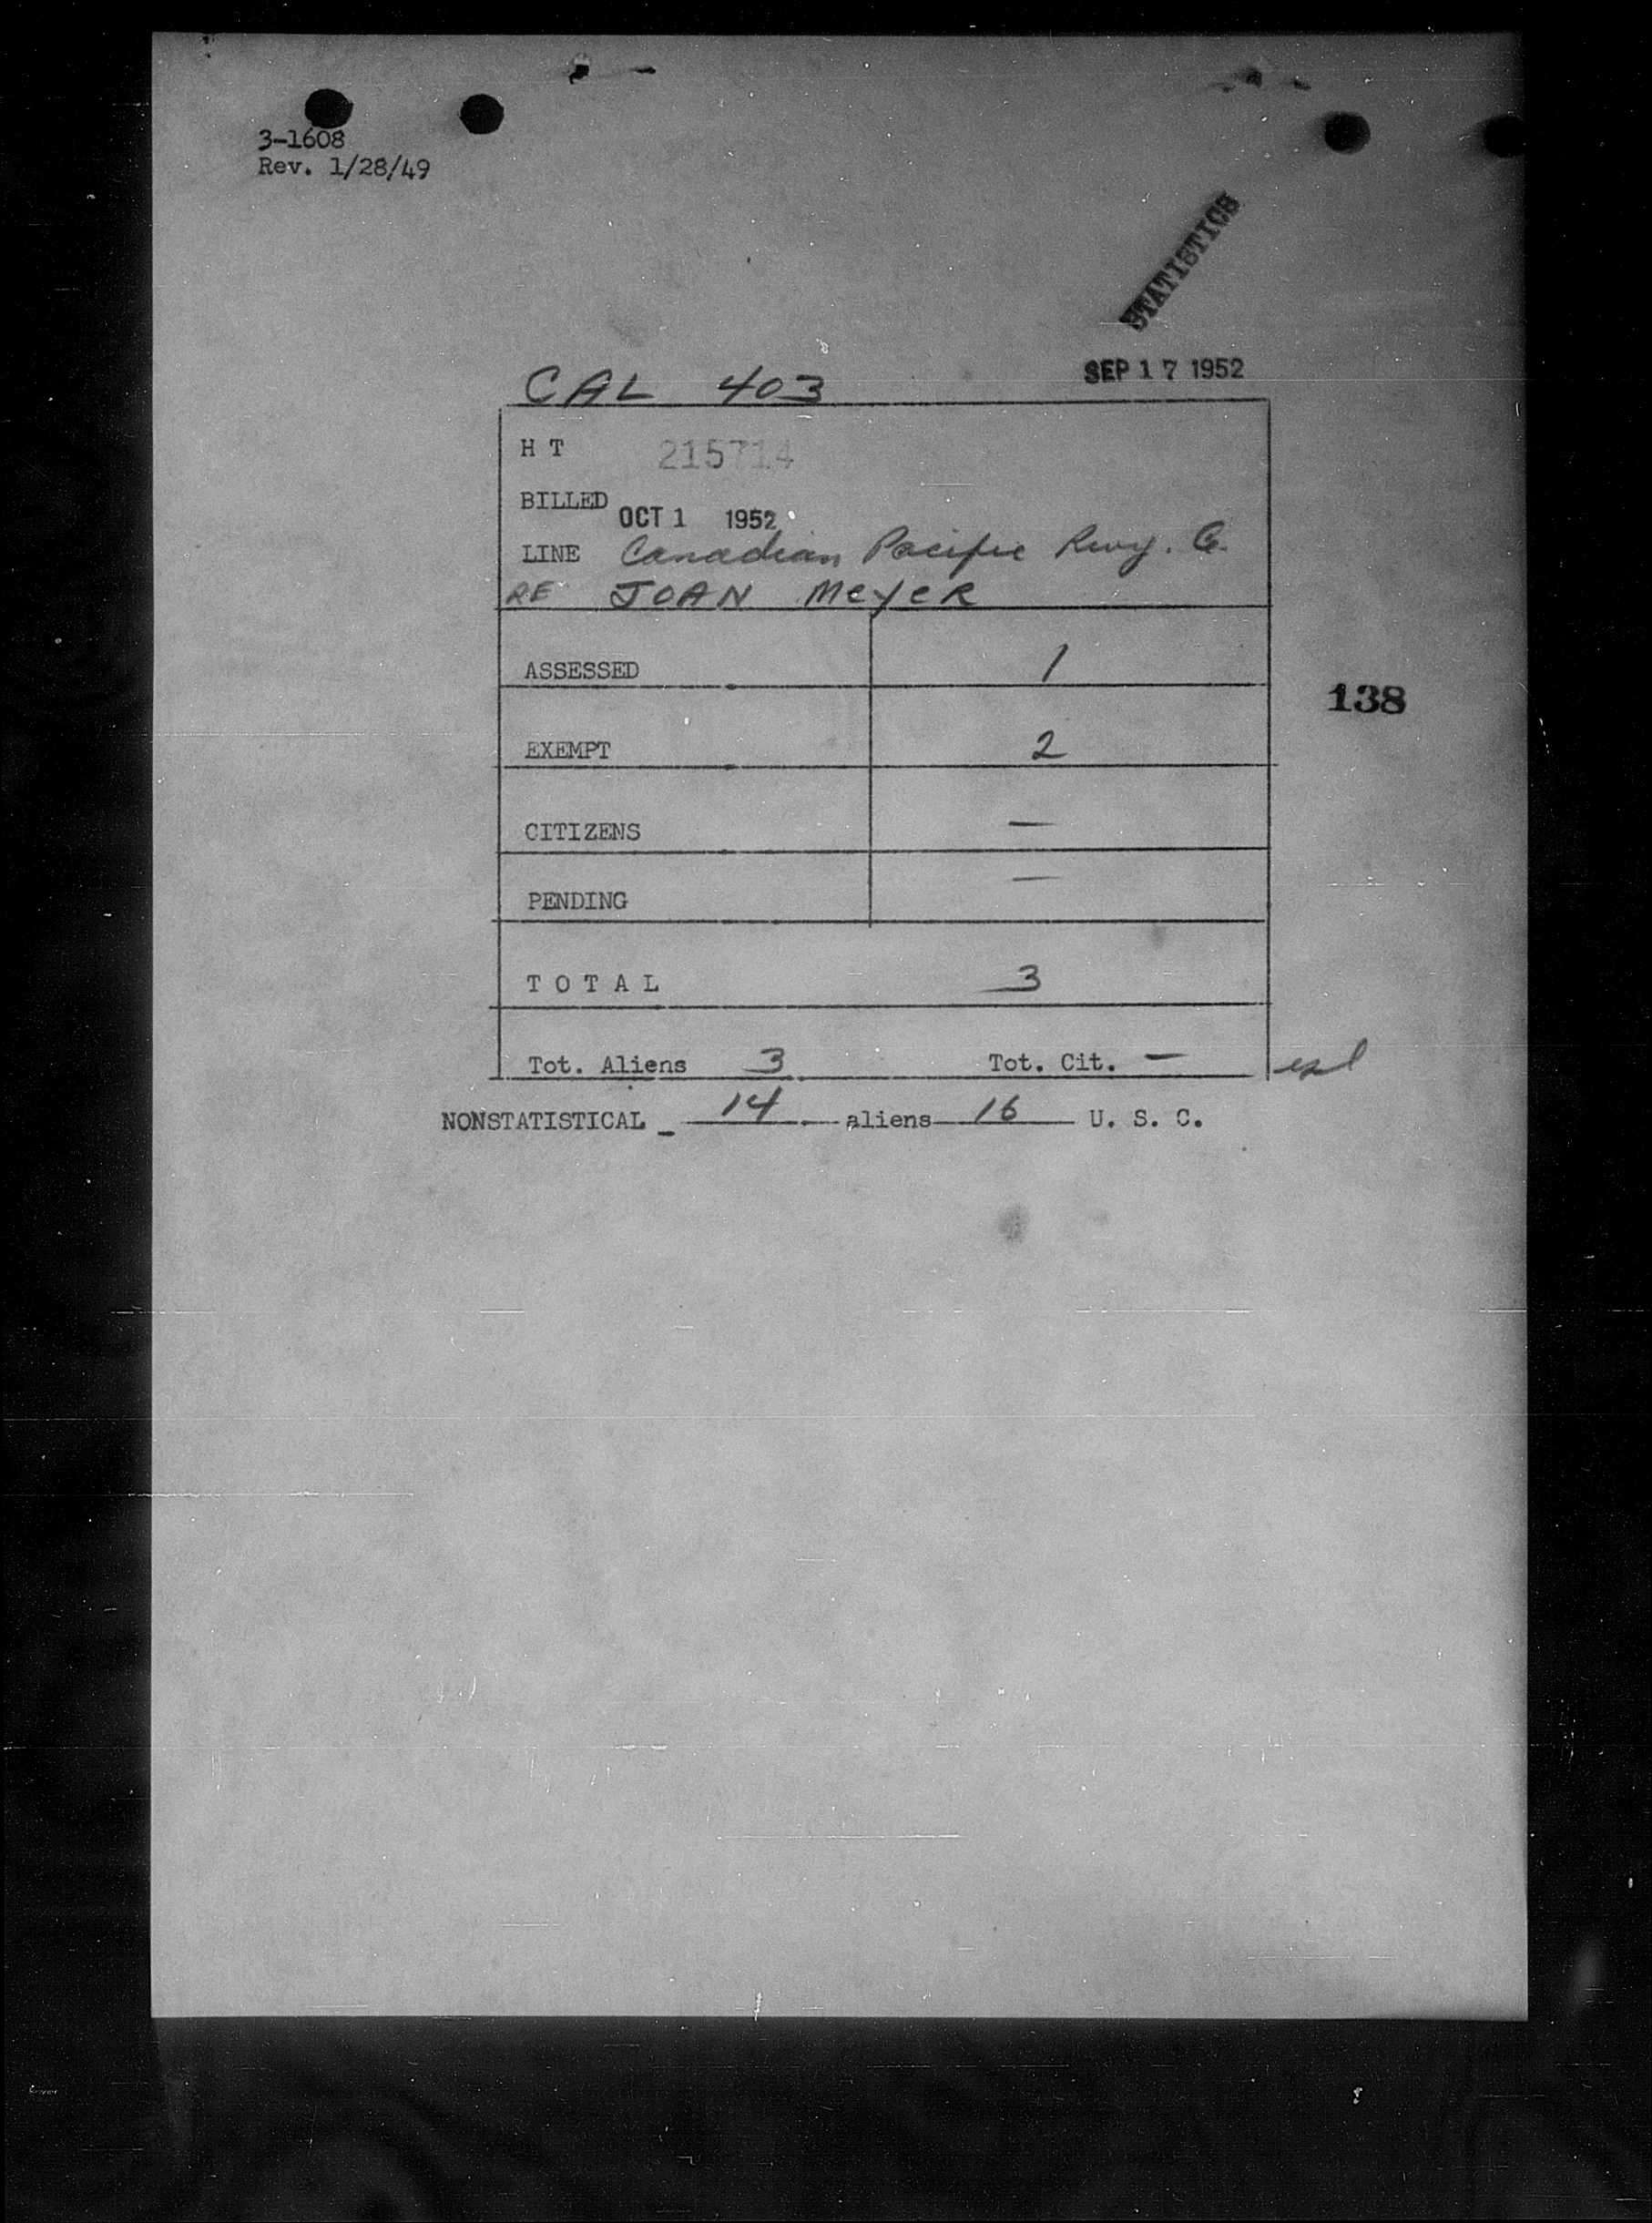 3-1608
Rev. 1/28/49
STATISTICS
CAL 403
SEP 17 1952
H T 215714
BILLED OCT 1 1952
LINE Canadian Pacific Rwy. Co.
RE JOAN MeyeR
ASSESSED 1
138
EXEMPT 2
CITIZENS —
PENDING —
T O T A L 3
Tot. Aliens 3 Tot. Cit. —
NONSTATISTICAL - 14 aliens 16 U. S. C.